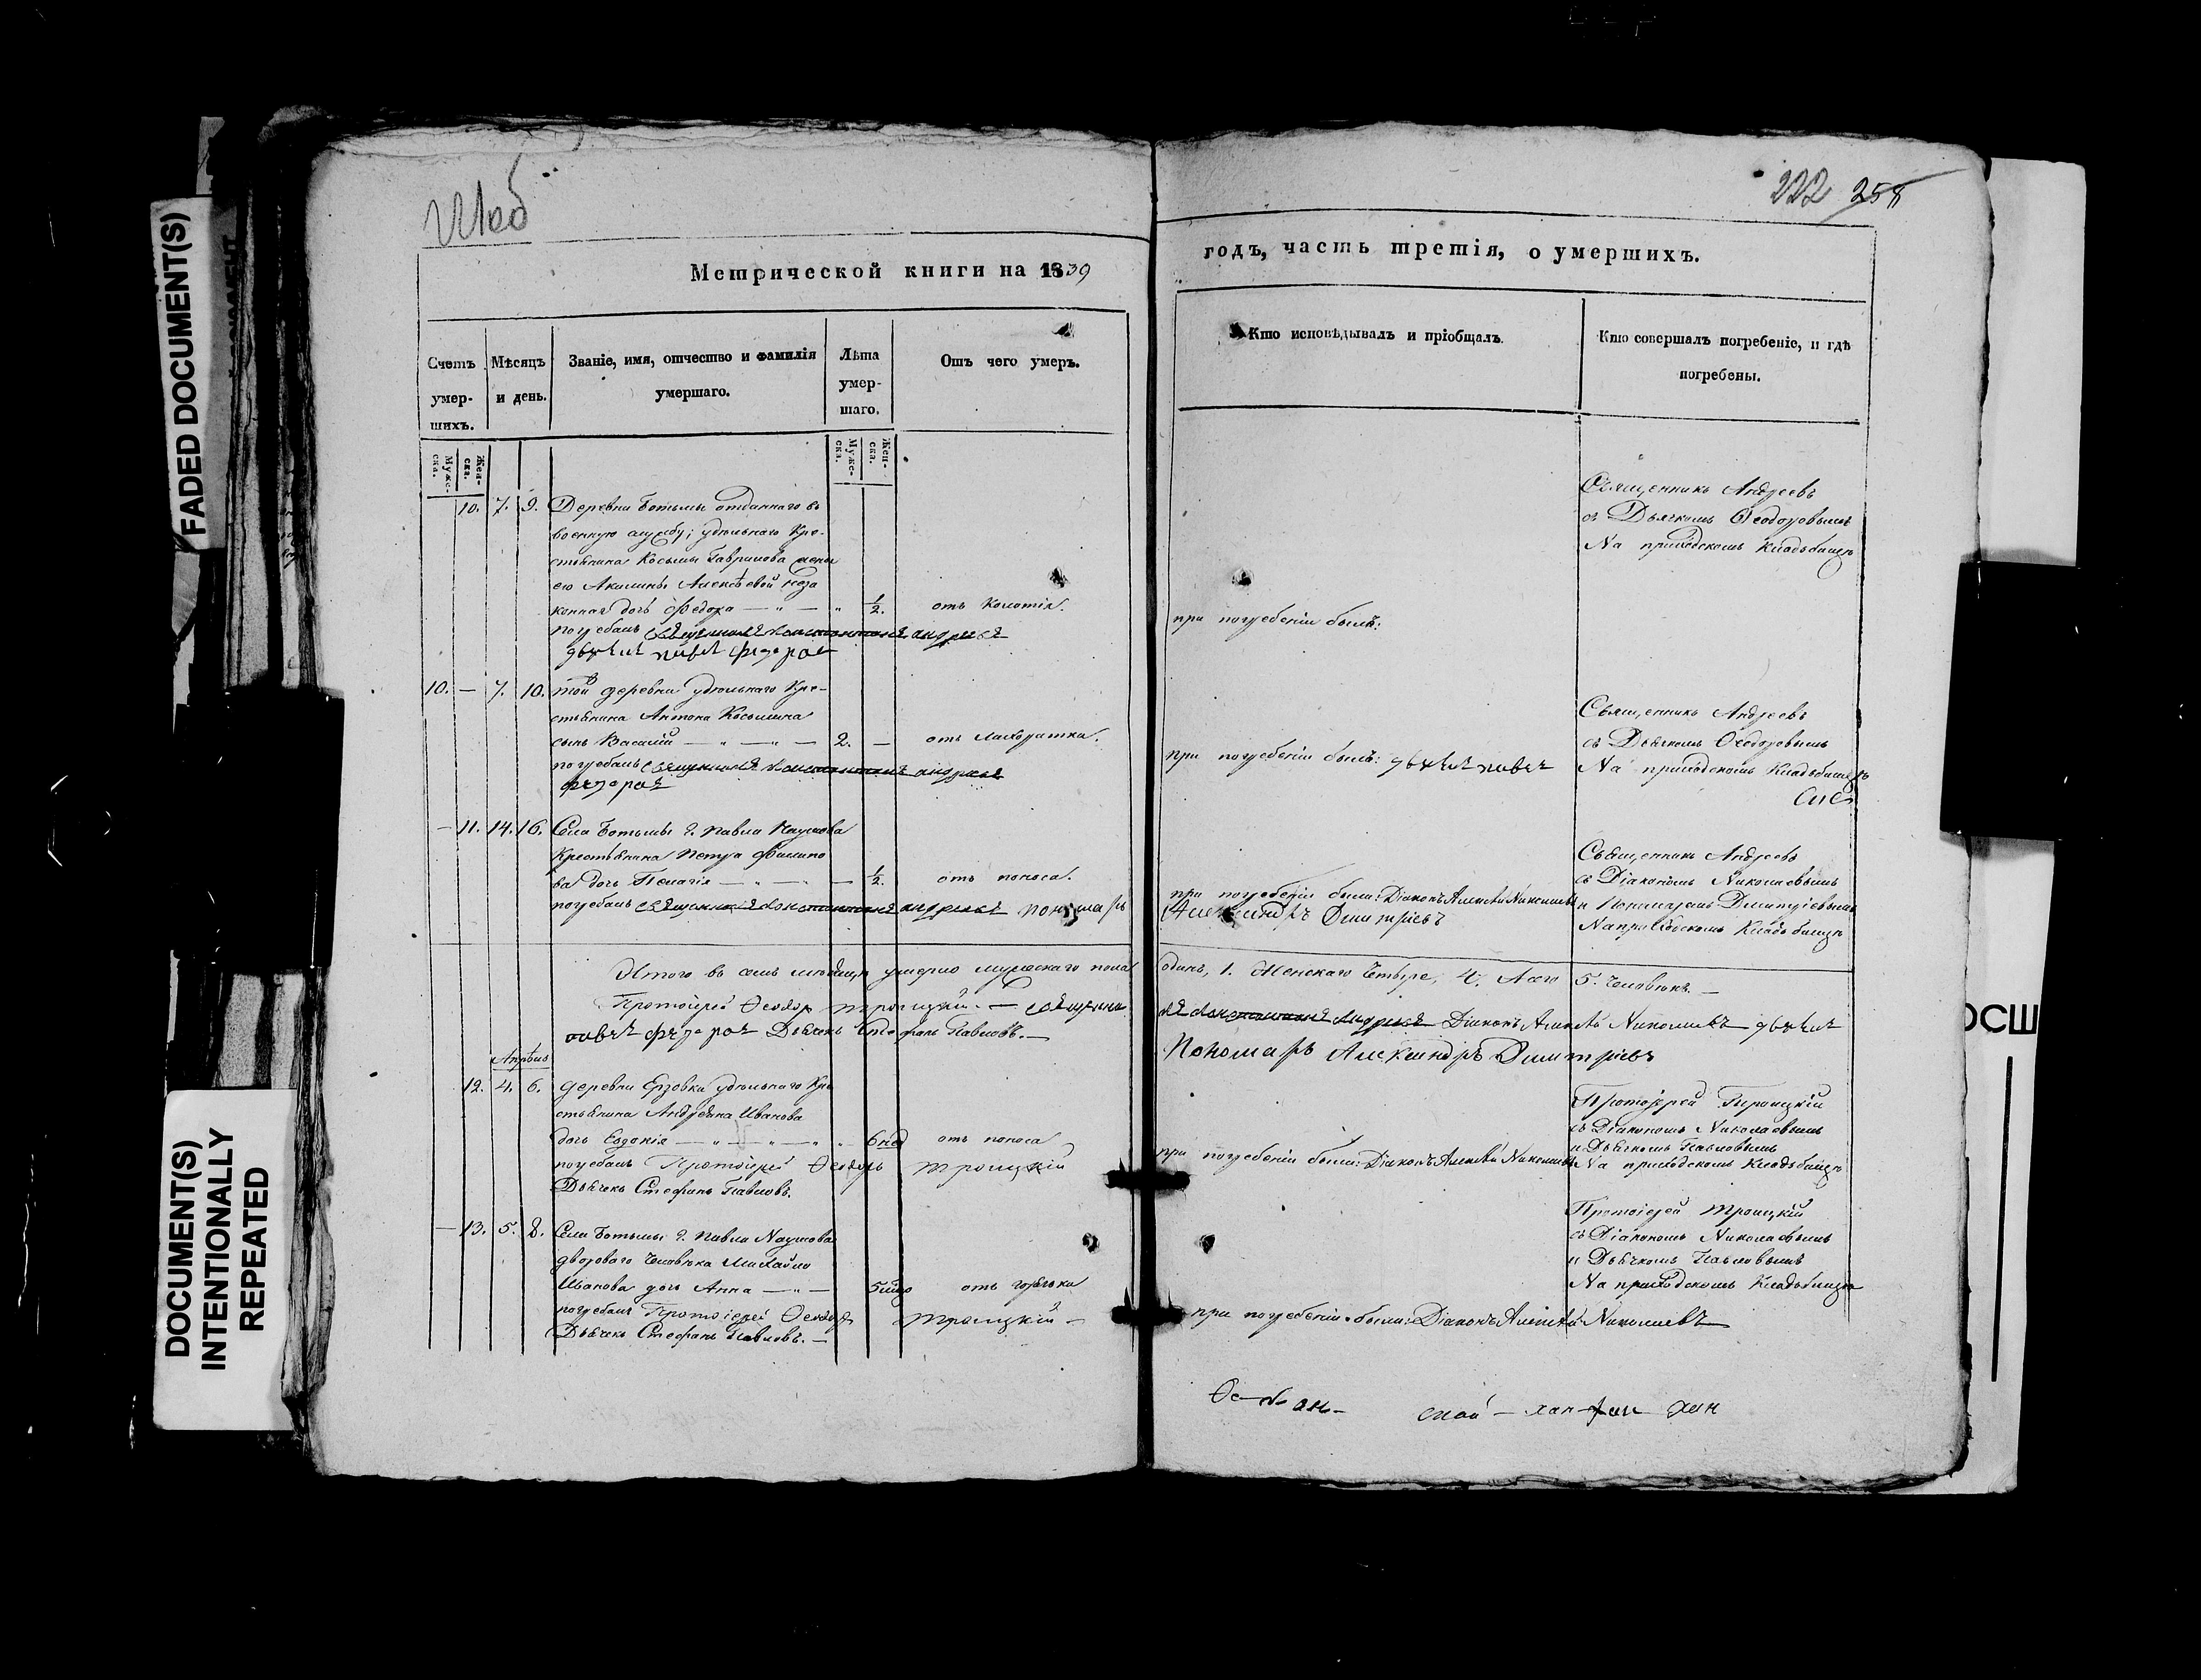 FADED DOCUMENT(S)
DOCUMENT(S)
INTENTIONALLY
REPEATED
222 258
Метрической книги на 1839
годъ, часть третія, о умершихъ.
Счетъ умер-шихъ.
Мѣсяцъ и день.
Званіе, имя, отчество и фамилія умершаго.
Лѣта умер-шаго.
Отъ чего умеръ.
Кто исповѣдывалъ и пріобщалъ.
Кто совершалъ погребеніе, и гдѣ погребены.
Муже-ска.
Жен-ска.
Муже-ска.
Жен-ска.
10. 7. 9. Деревни Ботьмы отданнаго въ
военную службу удѣльнаго Кре-
стьянина Косьмы Гаврилова жены
его Акилины Алексѣевой неза
конная дочь Федора — „ — „ ½.
погребалъ священникъ Константинъ андреевъ
дьячекъ павелъ федоровъ
при погребеніи былъ:
Священникъ Андреевъ
съ Дьячкомъ Ѳеодоровымъ
На приходскомъ Кладбищѣ
10. — 7. 10. той деревни удѣльнаго Кре-
стьянина Антона Косьмина
сынъ Василій — „ — „ — 2. —
погребалъ священникъ Константинъ андреевъ
федоровъ
при погребеніи былъ: дьячекъ павелъ
Священникъ Андреевъ
съ Дьячкомъ Ѳеодоровымъ
На приходскомъ Кладбищѣ
— 11. 14. 16. Села Ботьмы г. Павла Наумова
Крестьянина Петра Филипо
ва дочь Пелагія — „ — „ — ½. отъ поноса.
погребалъ священникъ Константинъ андреевъ пономарь
при погребеніи были: Діаконъ Алексѣй Николаевъ
Александръ Димитріевъ
Священникъ Андреевъ
съ Діакономъ Николаевымъ
и Пономаремъ Димитріевымъ
На приходскомъ Кладбищѣ
Итого въ семъ мѣсяцѣ умерло мужескаго пола одинъ, 1. Женскаго Четыре, 4. Всего 5. Человѣкъ. —
Протоіерей Ѳеодоръ Троицкій. — священникъ Константинъ Андреевъ Діаконъ Алексѣй Николаевъ дьячекъ
павелъ федоровъ Дьячекъ Стефанъ Павловъ. — Пономарь Александръ Димитріевъ
Апрѣль
12. 4. 6. деревни Ерзовки удѣльнаго Кре
стьянина Андреяна Иванова
дочь Евдокія — „ — „ — „ 6 нед отъ поноса
погребалъ Протоіерей Ѳеодоръ Троицкій
Дьячекъ Стефанъ Павловъ.
при погребеніи были: Діаконъ Алексѣй Николаевъ
Протоіерей Троицкій
съ Діакономъ Николаевымъ
и Дьячкомъ Павловымъ
На приходскомъ Кладбищѣ
— 13. 5. 8. Села Ботьмы г. Павла Наумова
двороваго Человѣка Михайло
Иванова дочь Анна — „ —
погребалъ Протоіерей Ѳеодоръ Троицкій —
Дьячекъ Стефанъ Павловъ. —
при погребеніи были: Діаконъ Алексѣй Николаевъ
Протоіерей Троицкій
съ Діакономъ Николаевымъ
и Дьячкомъ Павловымъ
На приходскомъ Кладбищѣ